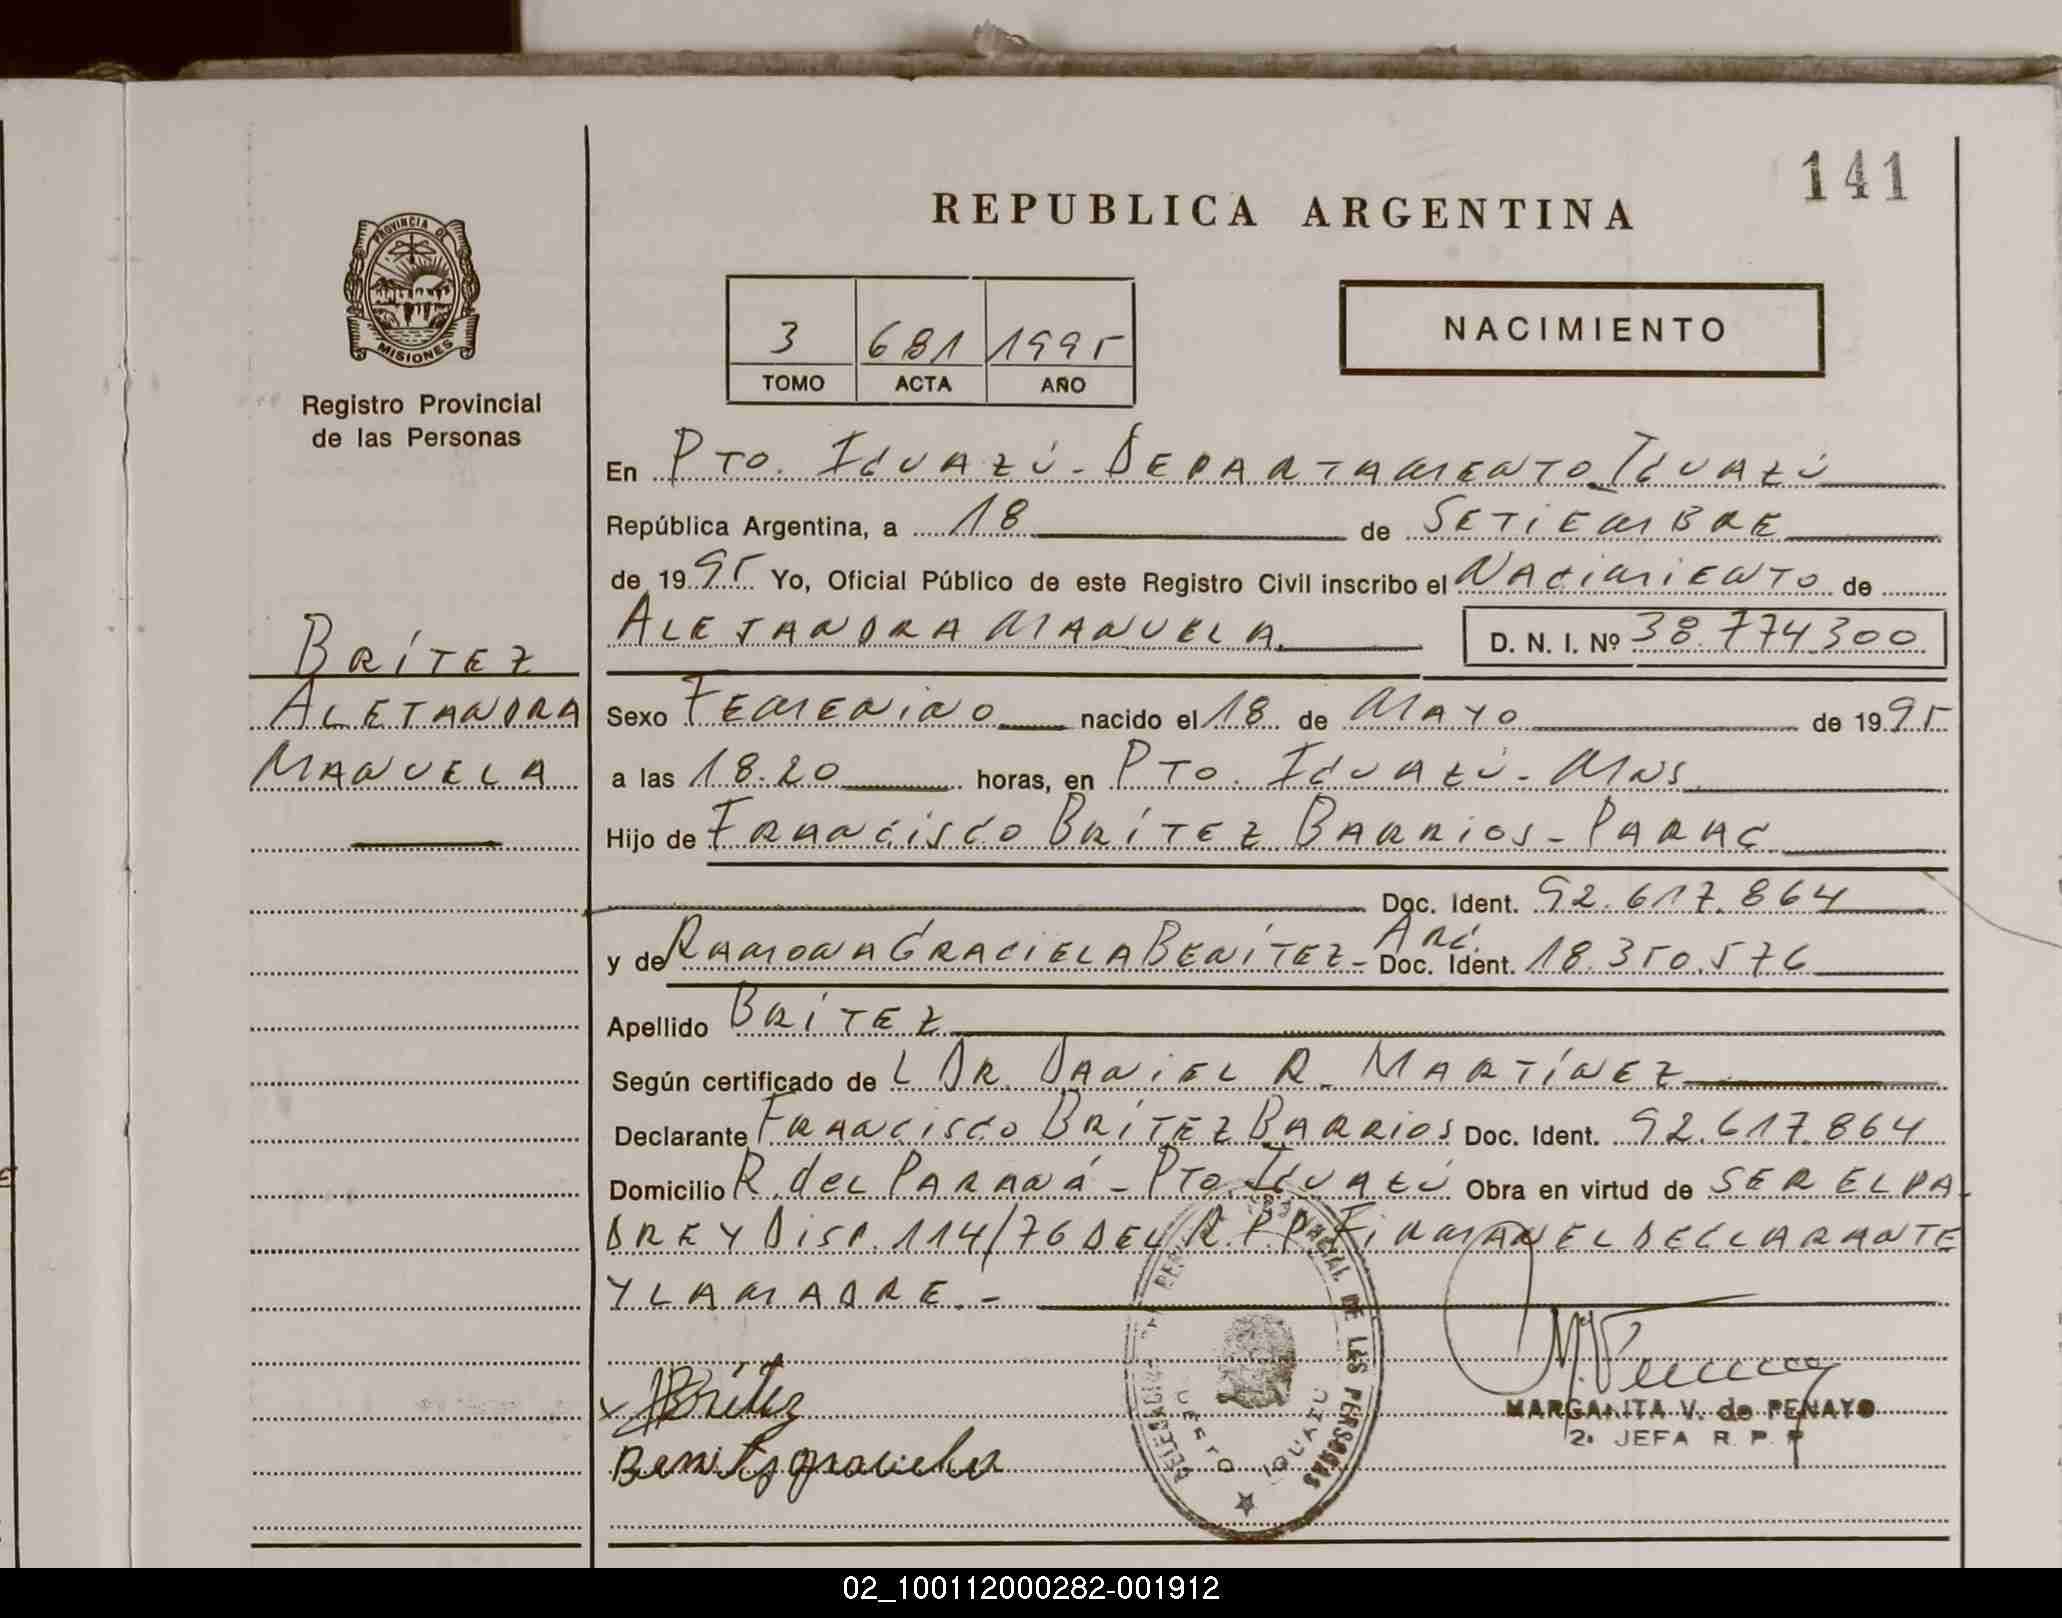 141
REPUBLICA ARGENTINA
PROVINCIA DE
MISIONES
Registro Provincial
de las Personas
3 681 1995
TOMO ACTA AÑO
NACIMIENTO
En Pto. IGUAZÚ - DEPARTAMENTO IGUAZÚ
República Argentina, a 18 de SETIEMBRE
de 1995 Yo, Oficial Público de este Registro Civil inscribo el NACIMIENTO de
ALEJANDRA MANUELA. D. N. I. Nº 38.774.300
BRÍTEZ
ALEJANDRA
MANUELA
Sexo FEMENINO nacido el 18 de MAYO de 1995
a las 18.20 horas, en PTO. IGUAZÚ - MNS
Hijo de FRANCISCO BRÍTEZ BARRIOS - PARAG
Doc. Ident. 92.617.864
y de RAMONA GRACIELA BENÍTEZ - ARG. Doc. Ident. 18.350.576
Apellido BRÍTEZ
Según certificado de L DR. DANIEL R. MARTÍNEZ
Declarante FRANCISCO BRÍTEZ BARRIOS Doc. Ident. 92.617.864
Domicilio R. del PARANÁ - PTO. IGUAZÚ Obra en virtud de SER EL PA-
DRE Y DISP. 114/76 DEL R.P.P. FIRMAN EL DECLARANTE
Y LA MADRE. -
Brítez
Benitez graciela
DE LAS PERSONAS
IGUAZU
MARGARITA V. de PENAYO
2ª JEFA R. P. P
02_100112000282-001912